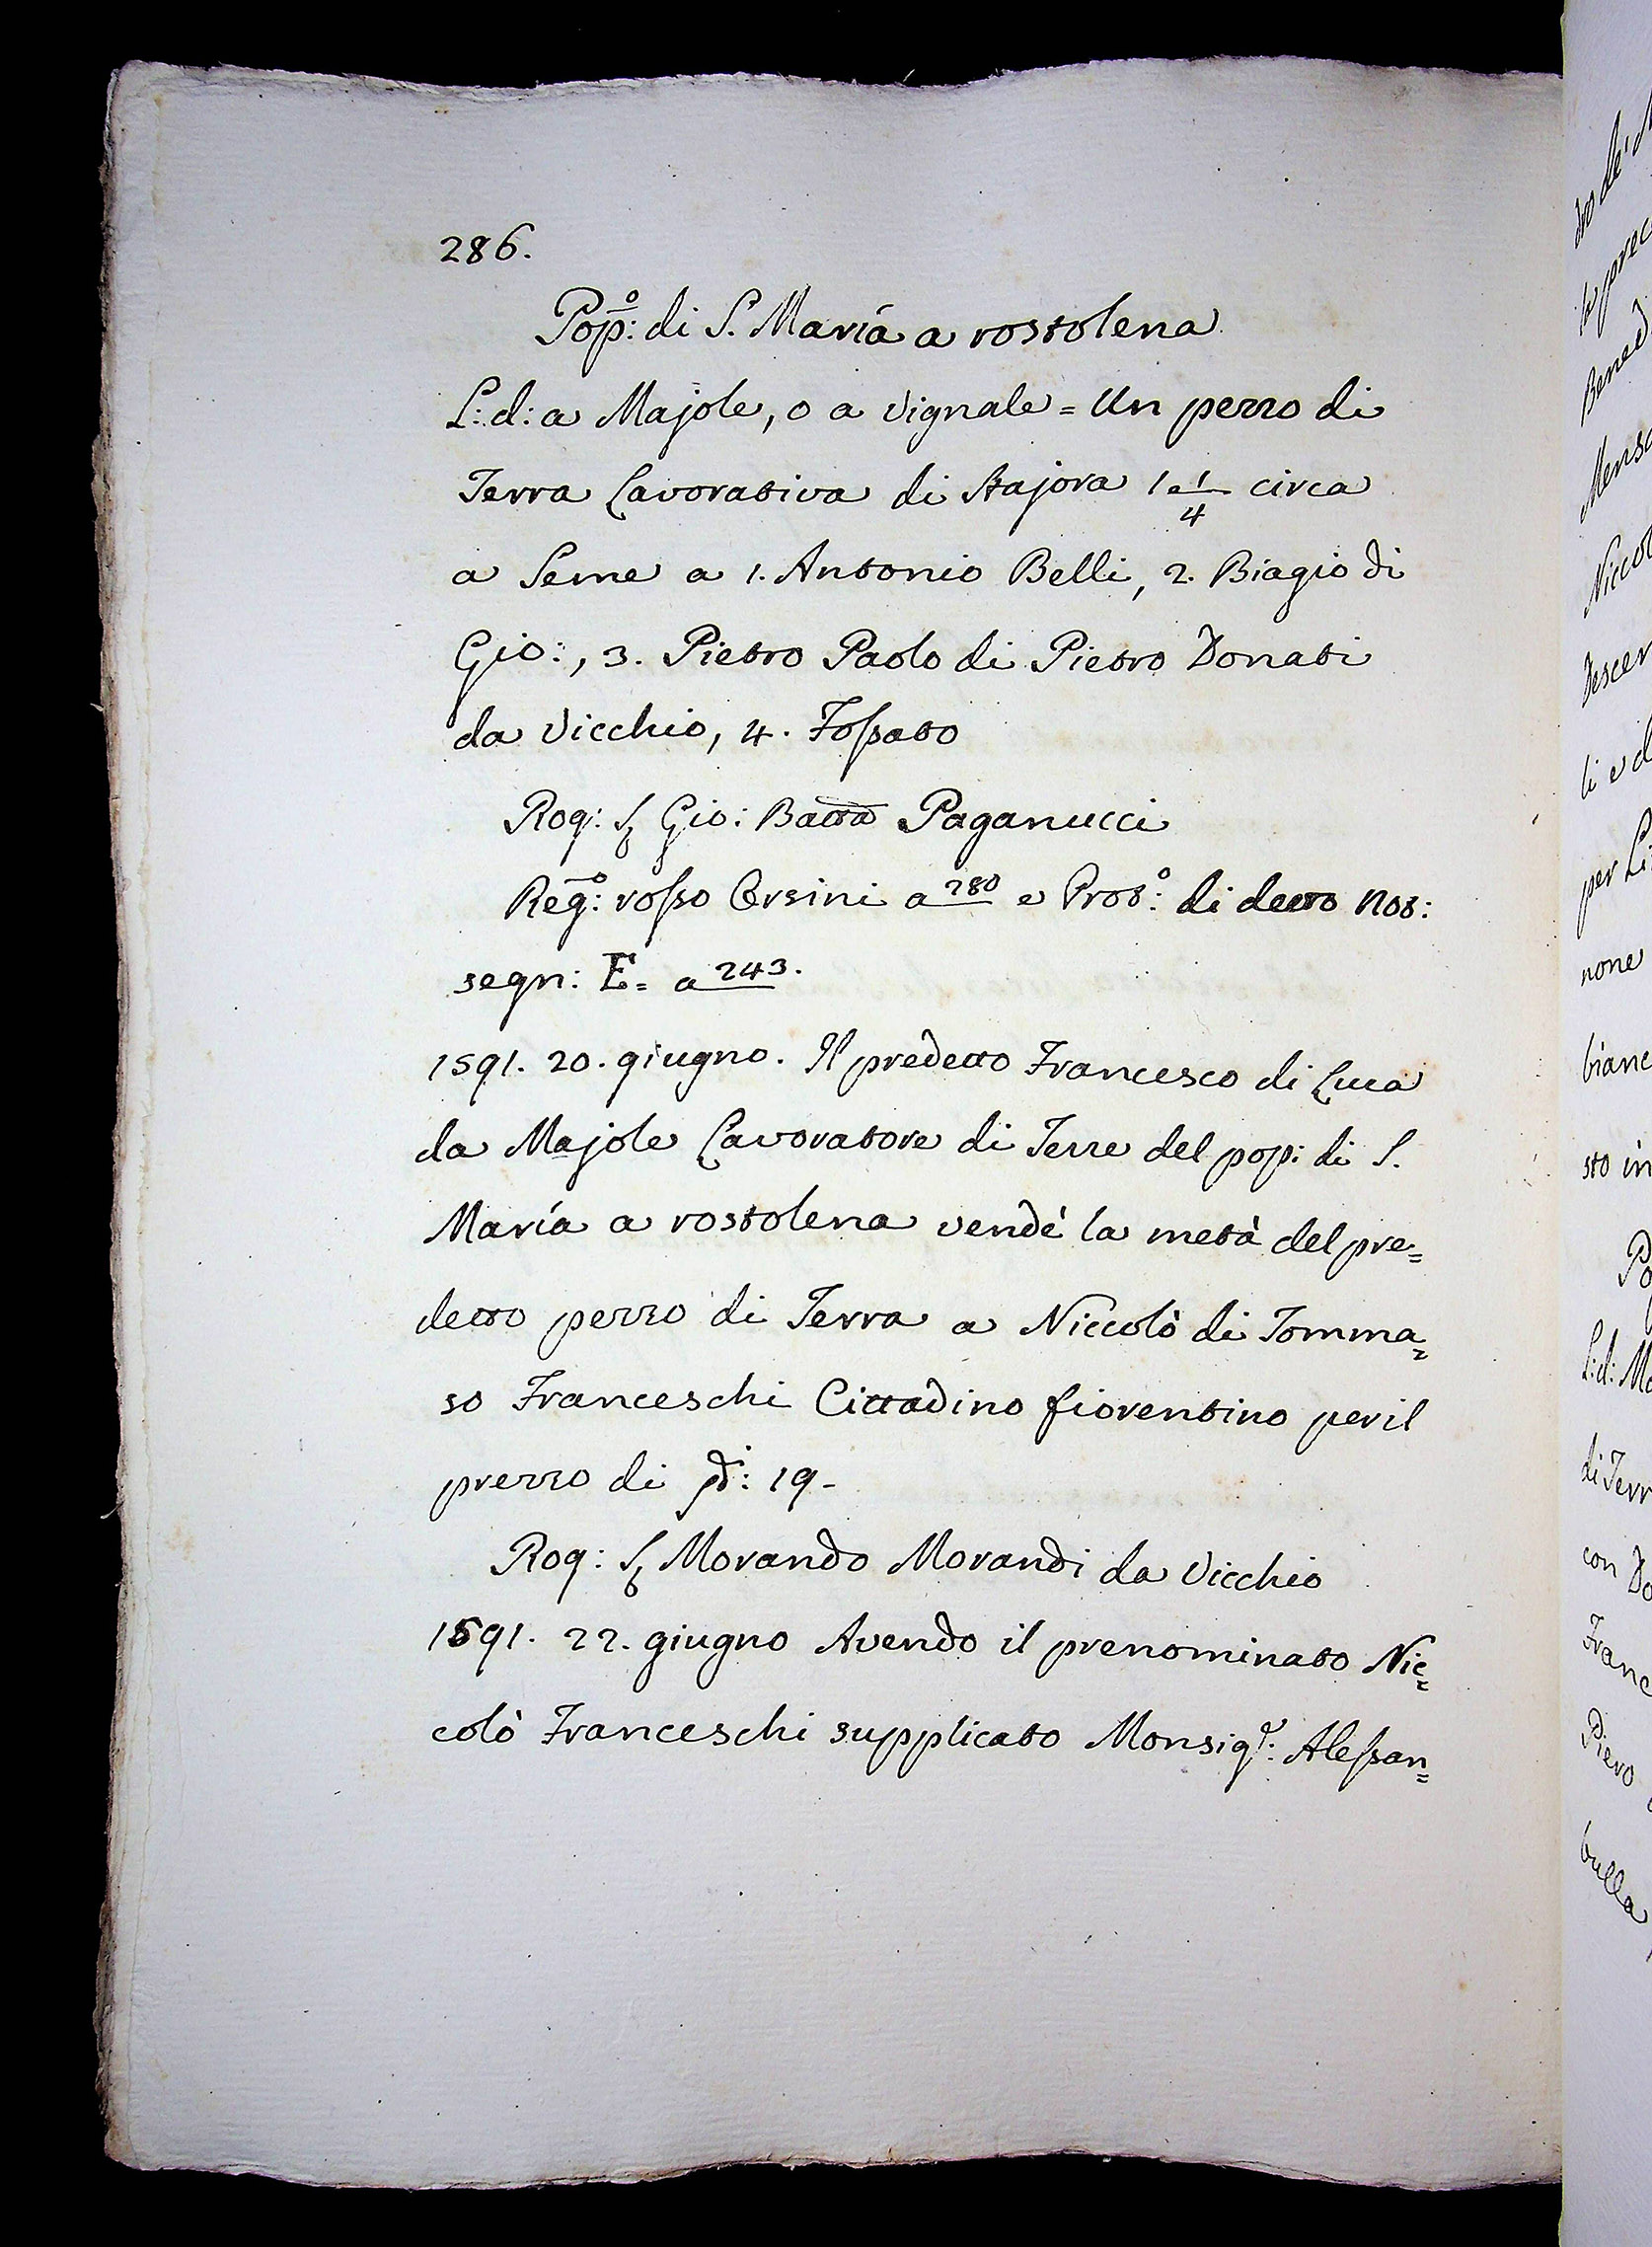 286.
Pop̄:º di S. María a rostolena
L: d: a Majole, o a Vignale = Un pezzo di
Terra Lavorativa di Stajora 1 e 1/4 circa
a Seme a 1. Antonio Belli, 2. Biagio di
Gio:, 3. Pietro Paolo di Pietro Donati
da Vicchio, 4. Fossato
Rog: S Gio: Batta Paganucci
Reg̃:º rosso Orsini a 280 e Prot:º di detto Not:
segn: E = a 243.
1591. 20. giugno. Il predetto Francesco di Luca
da Majole Lavoratore di Terre del pop: di S.
María a rostolena vendè la metà del pre=
detto pezzo di Terra a Niccolò di Tomma=
so Franceschi Cittadino fiorentino per il
prezzo di 19-
Rog: S Morando Morandi da Vicchio
1591. 22. giugno Avendo il prenominato Nic=
colò Franceschi supplicato Monsigr: Alessan=
dro de'
Bened
Mensa
Niccol
Descen
li e d
per Li
none
bianc
sto in
Po
L: d: Ma
di Terr
con Do
Franc
Piero
bulla